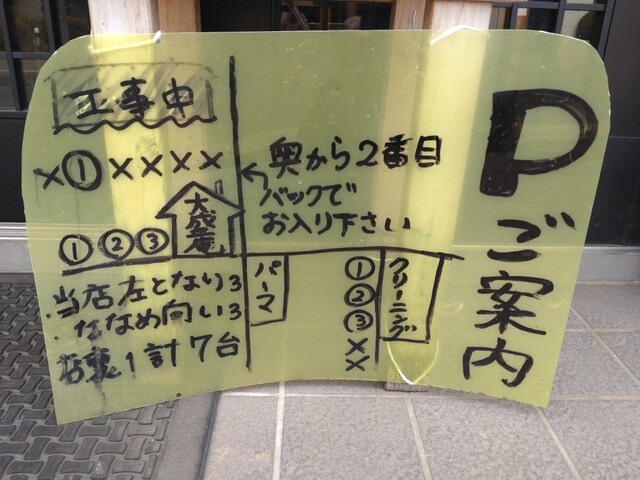 Pご案内
工事中
×①××××
奥から2番目
バックで
お入り下さい
大成庵
①②③
当店左となり3
ななめ向い3
店裏1計7台
パーマ
①
②
③
×
×
クリーニング